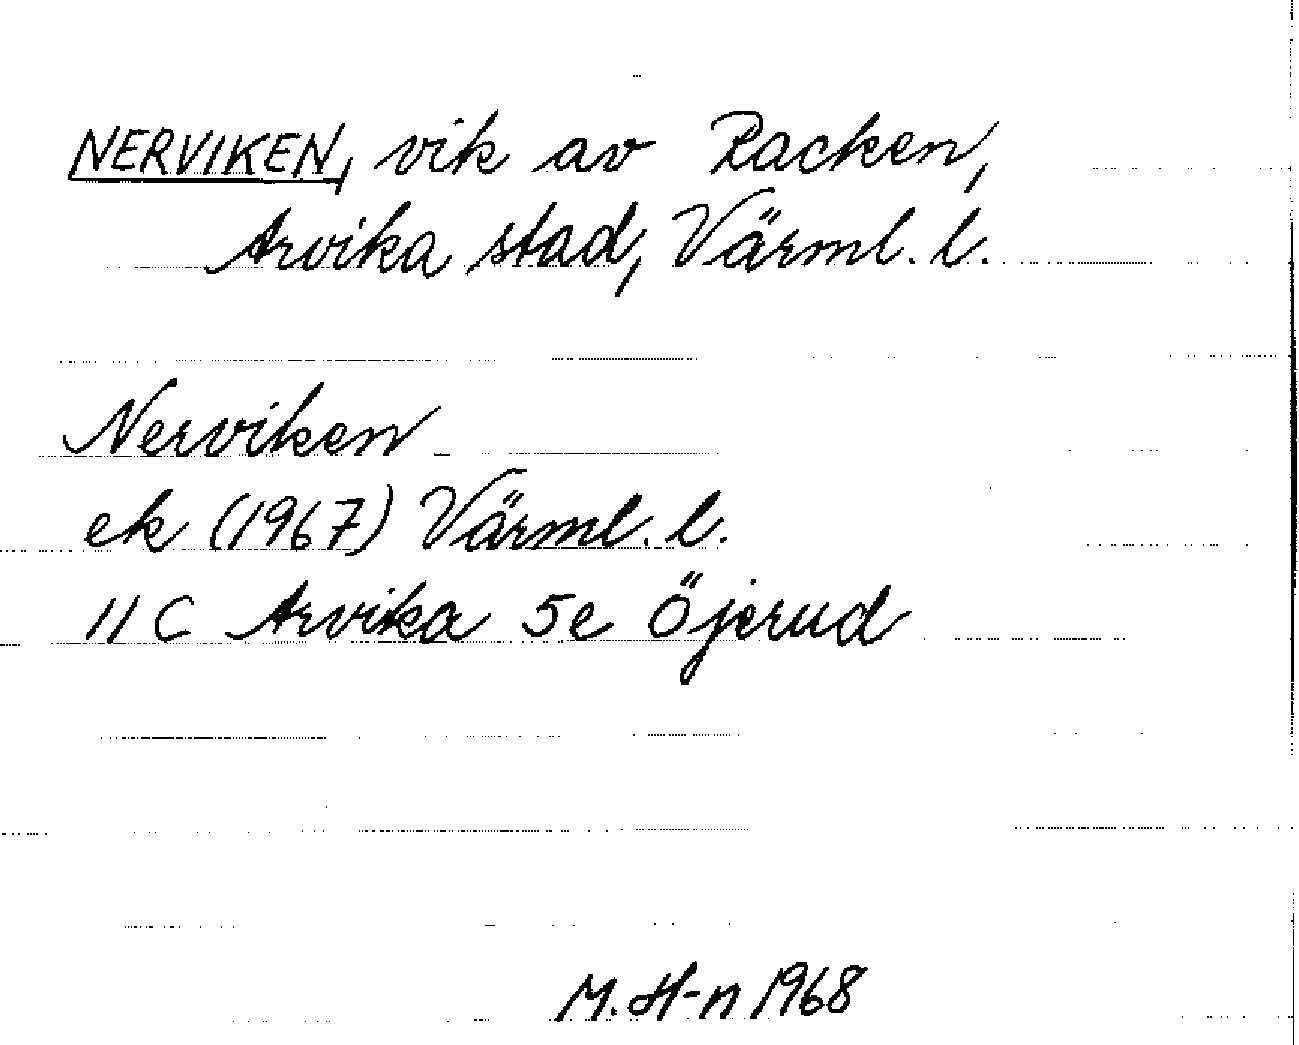 NERVIKEN, vik av Racken,
Arvika stad, Värml. l.
Nerviken
ek (1967) Värml. l.
11 C Arvika 5e Öjerud
M. H-n 1968